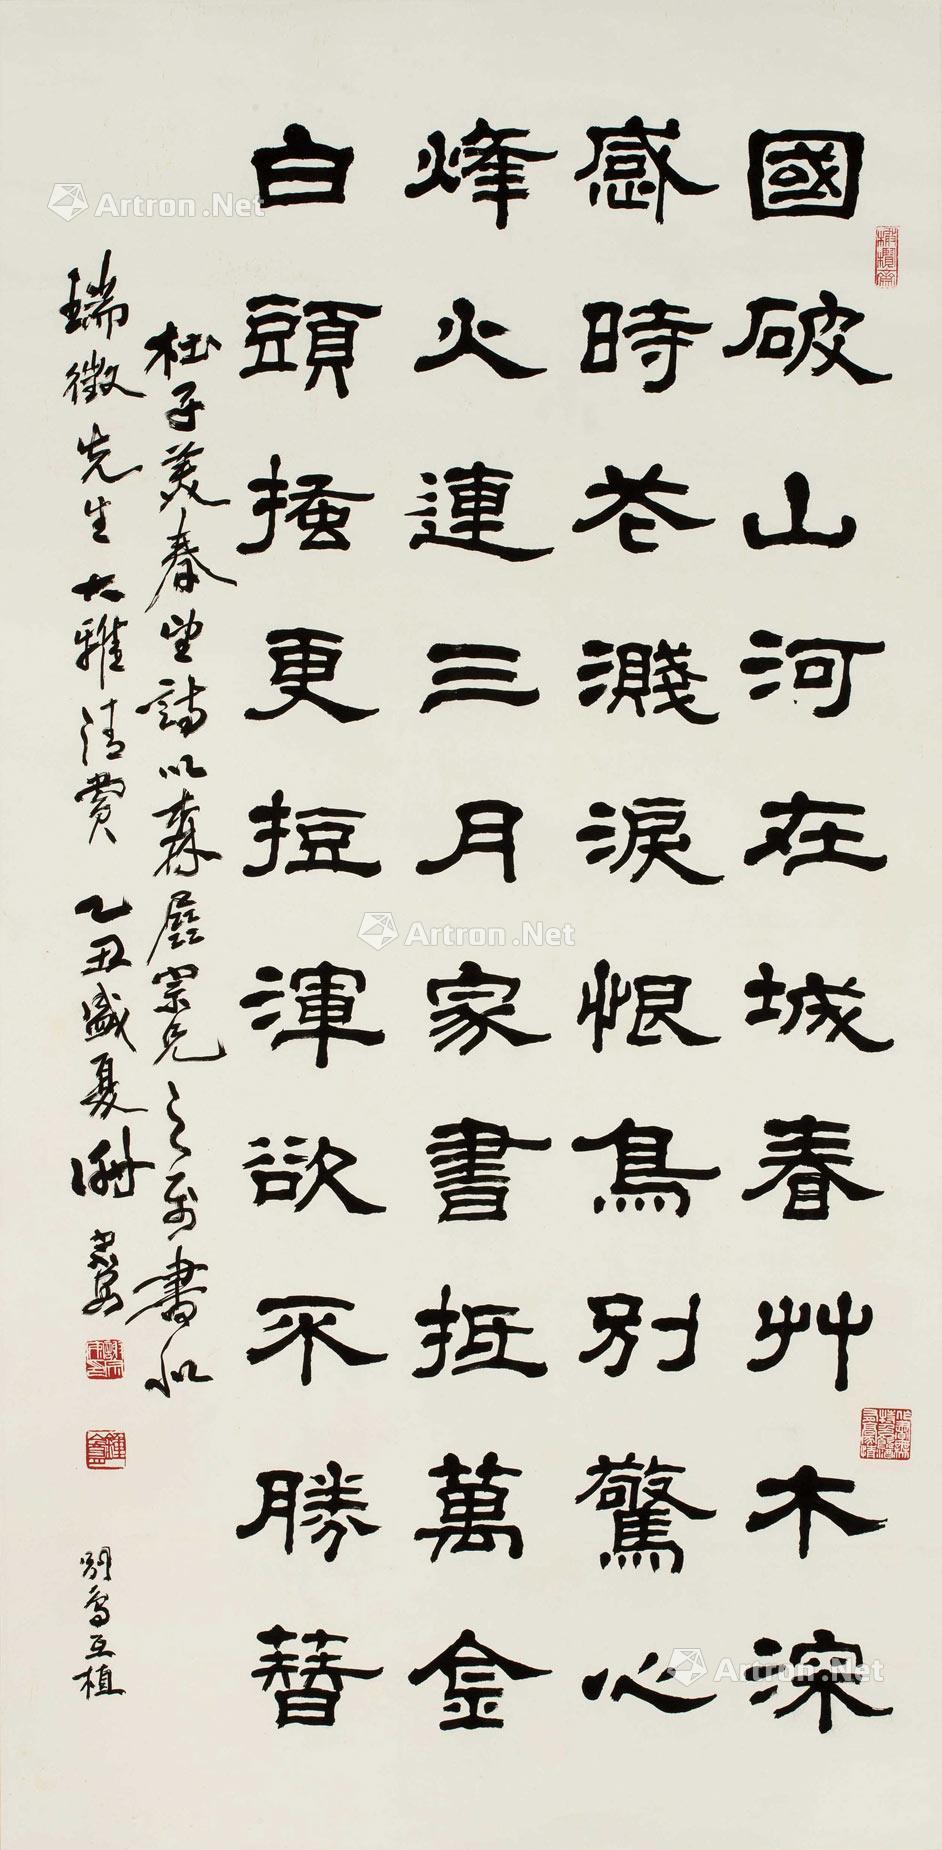 國破山河在城春艸木深
感時花濺淚恨鳥別驚心
烽火連三月家書抵萬金
白頭搔更短渾欲不勝簪
杜子美春望詩以森宗兄之屬書似
瑞徵先生大雅清賞 乙丑盛夏謝宗安
別鳥互植
Artron.Net
Artron.Net
Artron.Net